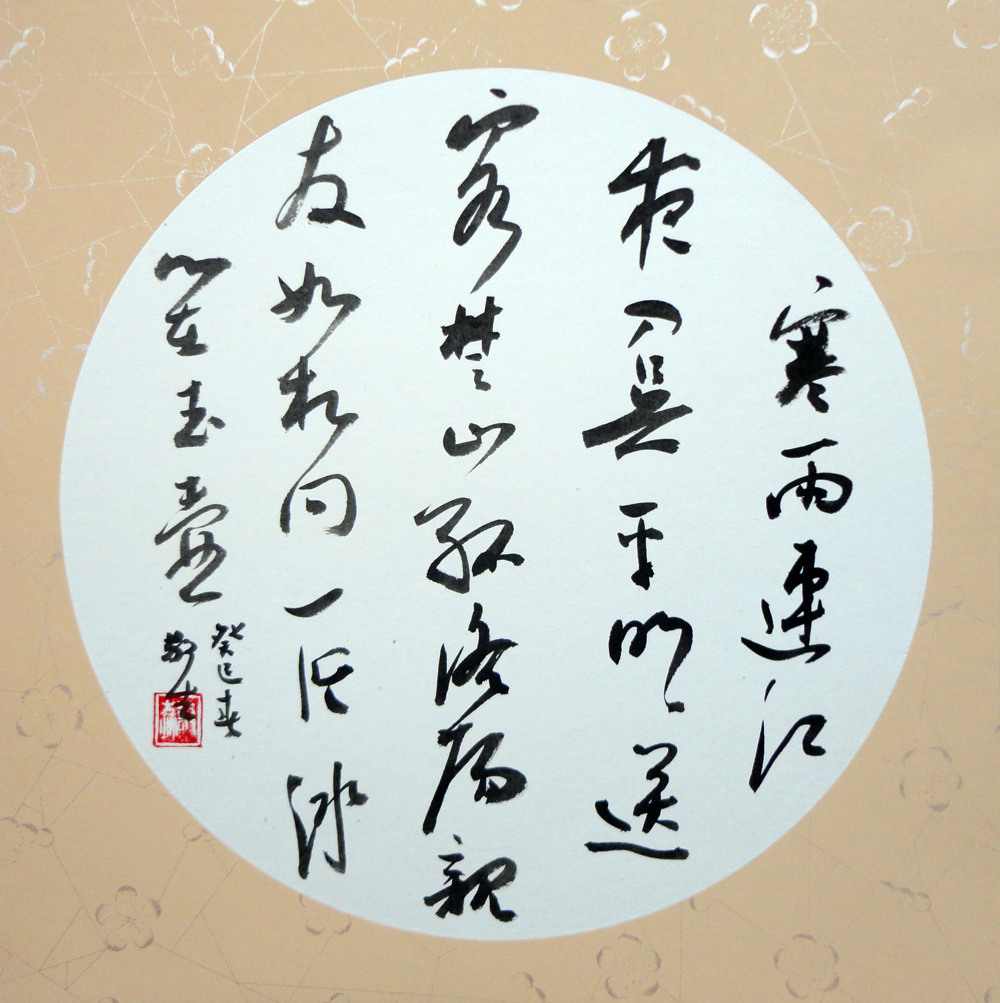 寒雨連江
夜入吳平明送
客楚山孤洛陽親
友如相問一片冰
心在玉壺
癸巳春